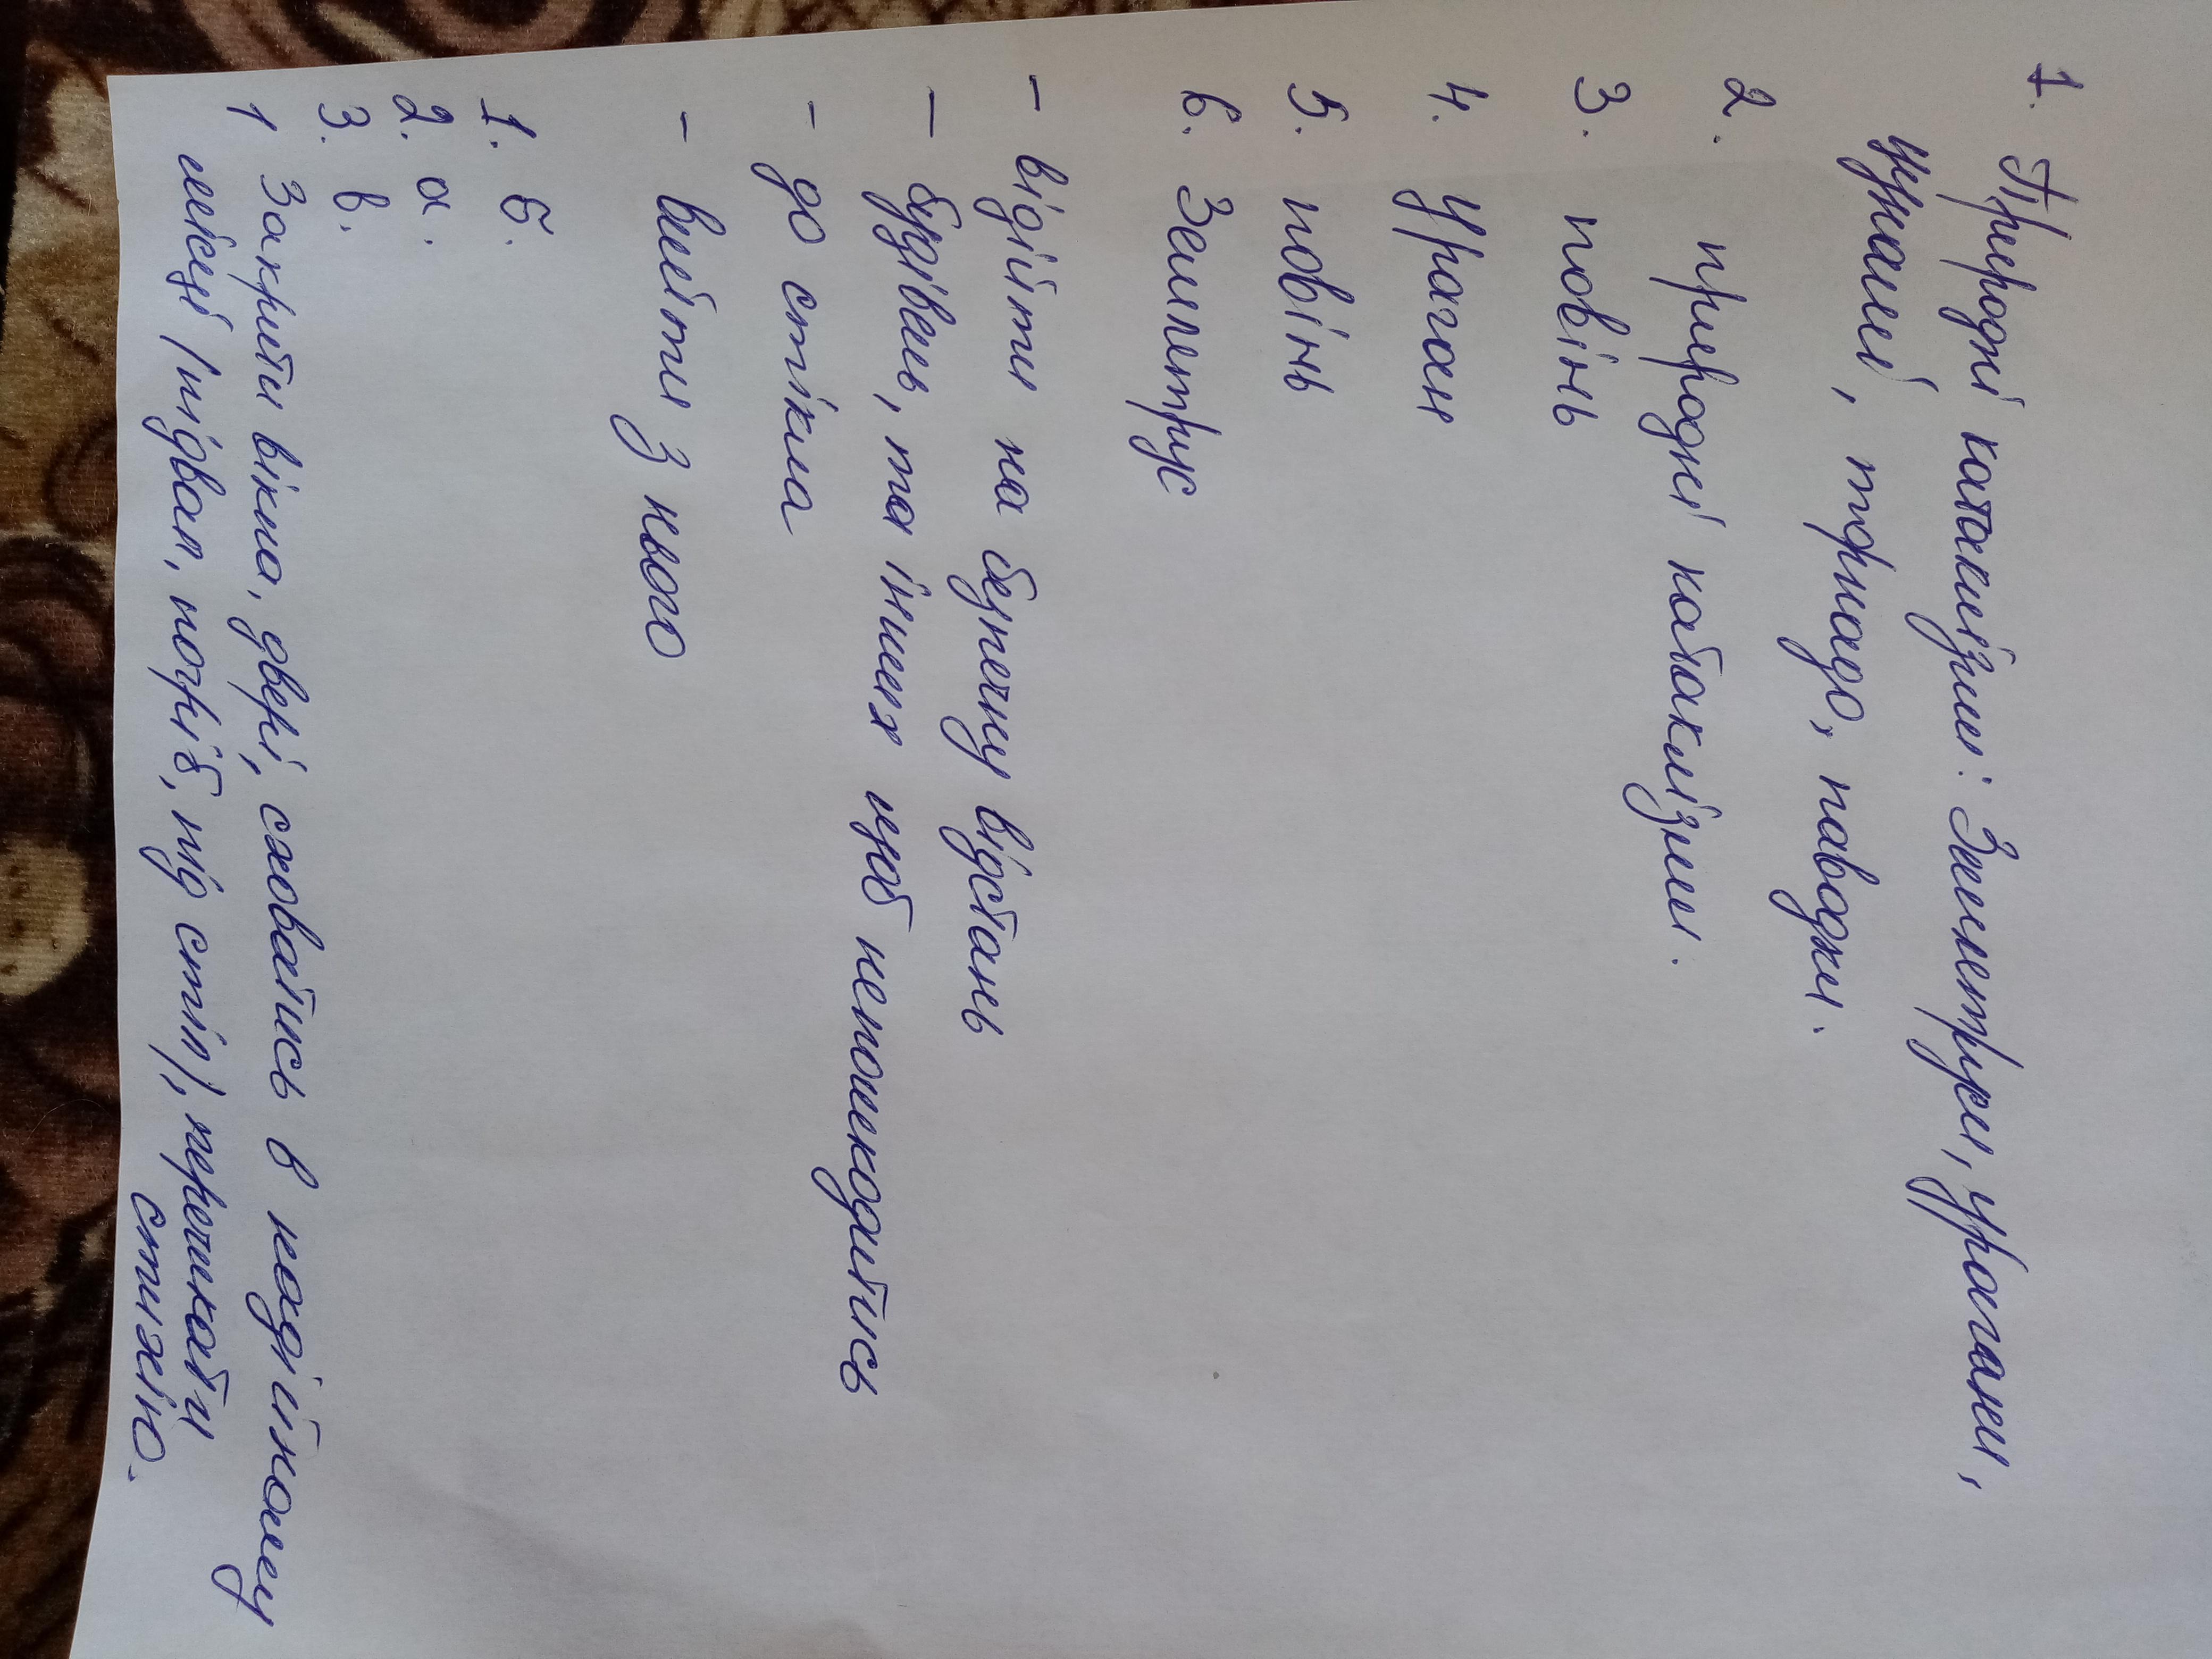 1. Природні катаклізми: Землетруси, урагани,
цунамі, торнадо, паводки.
2. природні катаклізми.
3. повінь
4. Ураган
5. повінь
6. Землетрус
- відійти на безпечну відстань
- будівель, та інших щоб непошкодитись
- до стікла
- вийти з нього
1. б.
2. а.
3. в.
1 Закрити вікна, двері, сховатись в надійному
місці (підвал, погріб, під стіл), перечекати
стихію.